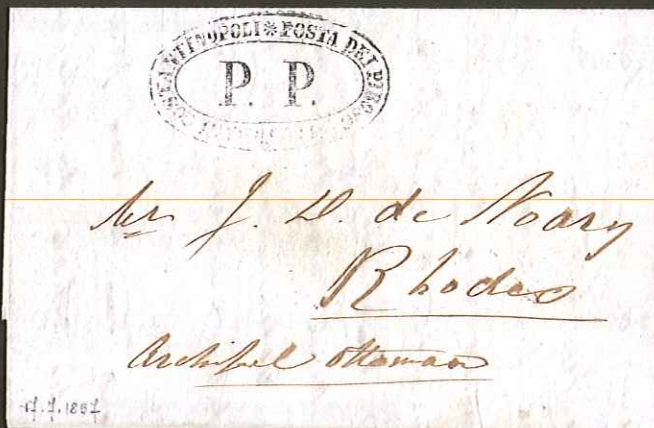 COSTANTINOPOLI * POSTA DEI PIROSC
P. P.
Mr J. D. de Noary
Rhodes
Archipel ottoman
17.7.1857